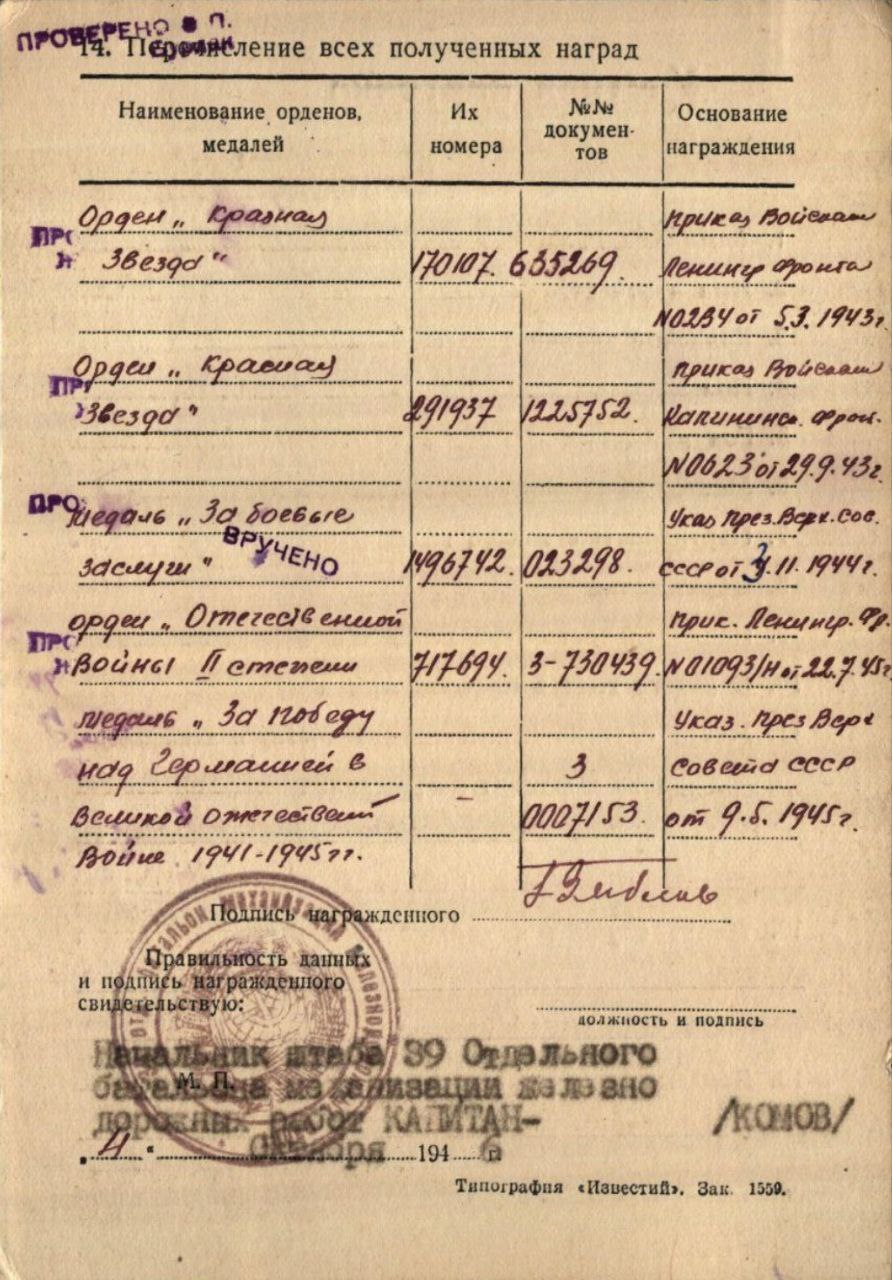 ПРОВЕРЕНО В П.
14. Перечисление всех полученных наград
Наименование орденов, медалей
Их номера
№№ документов
Основание награждения
Орден „ Красная приказ Войскам
ПРО
Звезда" 170107. 635269. Ленингр фронта
N0234 от 5.3.1943г.
Орден „ Красная приказ Войскам
ПРО
Звезда" 291937 1225752. Калининс. фрон.
N0623 от 29.9.43г
ПРО
Медаль „ За боевые Указ През. Верх. Сов.
ВРУЧЕНО
заслуги" 1496742. 023298. СССР от 3.11.1944г.
орден „ Отечественной прик. Ленингр. Фр.
ПРО
Войны II степени 717694. 3-730439. N01093/н от 22.7.45г
медаль „ За победу Указ. През Верх
над Германией в З Совета СССР
Великой отечествен – 0007153. от 9.5.1945г.
Войне 1941-1945гг.
Подпись награжденного
Правильность данных
и подпись награжденного
свидетельствую:
должность и подпись
Начальник штаба 39 Отдельного
батальона механизации железно
М. П.
дорожных работ КАПИТАН- /КОМОВ/
„ 4 " 194 6 г.
Типография «Известий». Зак. 1559.